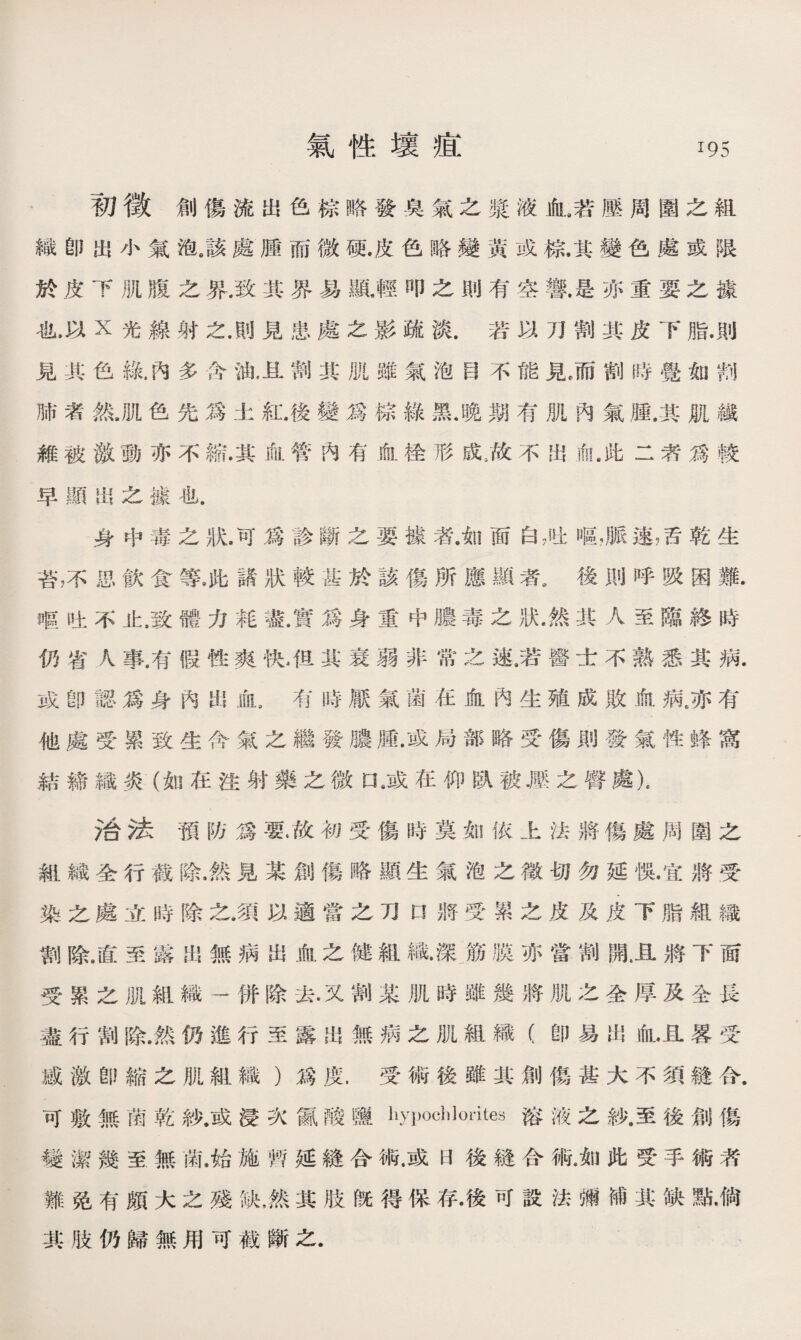 氣性壞疽
195
初徵 創傷流出色棕略發臭氣之漿液血。若壓周圍之組
織卽出小氣泡。該處腫而微硬。皮色略變黃或棕。其變色處或限
於皮下肌腹之界。致其界易顯。輕叩之則有空響。是亦重要之據
也。以X光線射之。則見患處之影疏淡. 若以刀割其皮下脂。則
見其色綠。內多含油。且割其肌雖氣泡目不能見。而割時覺如割
肺者然。肌色先爲土紅。後變爲棕綠黑。晚期有肌內氣腫。其肌纖
維被激動亦不縮。其血管內有血栓形成。故不出血。此二者爲較
早顯出之據也.
身中毒之狀。可爲診斷之要據者。如面白,吐嘔,脈速,舌乾生
苔,不思飲食等。此諸狀較甚於該傷所應顯者。 後則呼吸困難.
嘔吐不止。致體力耗盡。實爲身重中膿毒之狀。然其人至臨終時
仍省人事。有假性爽快。但其衰弱非常之速。若醫士不熟悉其病.
或卽認爲身內出血。 有時厭氣菌在血內生殖成敗血病。亦有
他處受累致生含氣之繼發膿腫。或局部略受傷則發氣性蜂窩
結締織炎(如在注射藥之微口。或在仰臥被壓之臀處)。
治法 預防爲要。故初受傷時莫如依上法將傷處周圍之
組織全行截除。然見某創傷略顯生氣泡之徵切勿延悞。宜將受
染之處立時除之。須以適當之刀口將受累之皮及皮下脂組織
割除。直至露出無病出血之健組織。深筋膜亦當割開。且將下面
受累之肌組織一併除去。又割某肌時雖幾將肌之全厚及全長
盡行割除。然仍進行至露出無病之肌組織(卽易出血。且畧受
感激卽縮之肌組織)爲度. 受術後雖其創傷甚大不須縫合.
可敷無菌乾紗。或浸次氯酸鹽 hypochlorites 溶液之紗。至後創傷
變潔幾至無菌。始施暫延縫合術。或日後縫合術。如此受手術者
難免有頗大之殘缺,然其肢旣得保存。後可設法彌補其缺點。倘
其肢仍歸無用可截斷之.